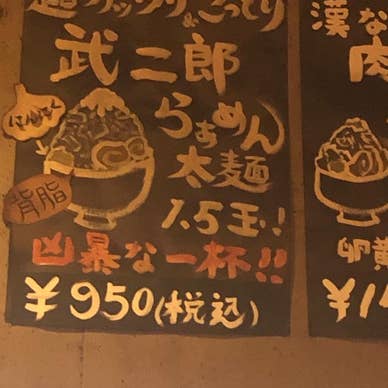 超ガッツリ&こってり
武二郎
にんにく
らぁめん
太麺
背脂
1.5玉!!
凶暴な一杯!!
¥950(税込)
漢な
肉
卵黄
¥1